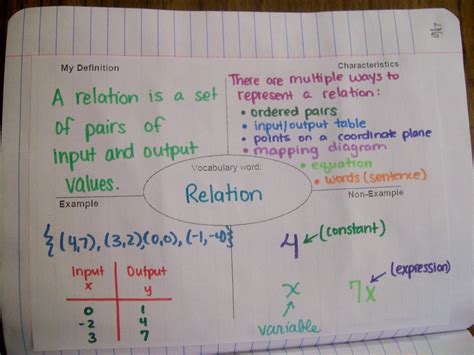 My Definition
A relation is a set
of pairs of
input and output
values.
Characteristics
There are multiple ways to
represent a relation:
• ordered pairs
• input/output table
• points on a coordinate plane
• mapping diagram
• equation
• words (sentence)
Vocabulary word:
Relation
Example
{(4,7), (3,2)(0,0), (-1,-4)}
Input Output
x y
0 1
-2 4
3 7
Non-Example
4 (constant)
x
variable
7x (expression)